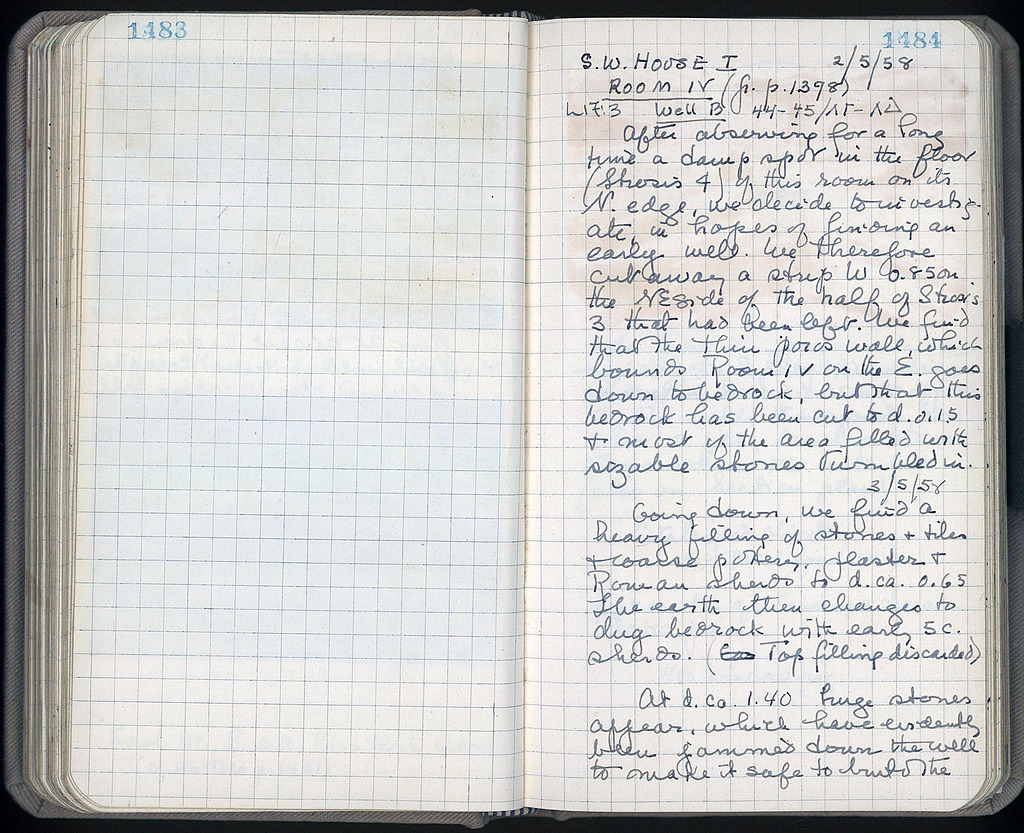 1483
1484
S.W. HOUSE I 2/5/58
ROOM IV (fr. p. 1398)
Well B 44-45/ΛΓ-ΛΔ
After observing for a long
time a damp spot in the floor
(Strosis 4) of this room on its
N. edge, we decide to investig-
ate, in hopes of finding an
early well. We therefore
cut away a strip W 0.85 on
the NE side of the half of Strosis
3 that had been left. We find
that the thin poros wall, which
bounds Room IV on the E. goes
down to bedrock, but that this
bedrock has been cut to d. 0.15
+ most of the area filled with
sizable stones tumbled in.
3/5/58
Going down, we find a
heavy filling of stones + tiles
+ coarse pottery, plaster +
Roman sherds to d. ca. 0.65
The earth then changes to
dug bedrock with early 5 c.
sherds. (Top filling discarded)
At d. ca. 1.40 huge stones
appear, which have evidently
been jammed down the well
to make it safe to build the